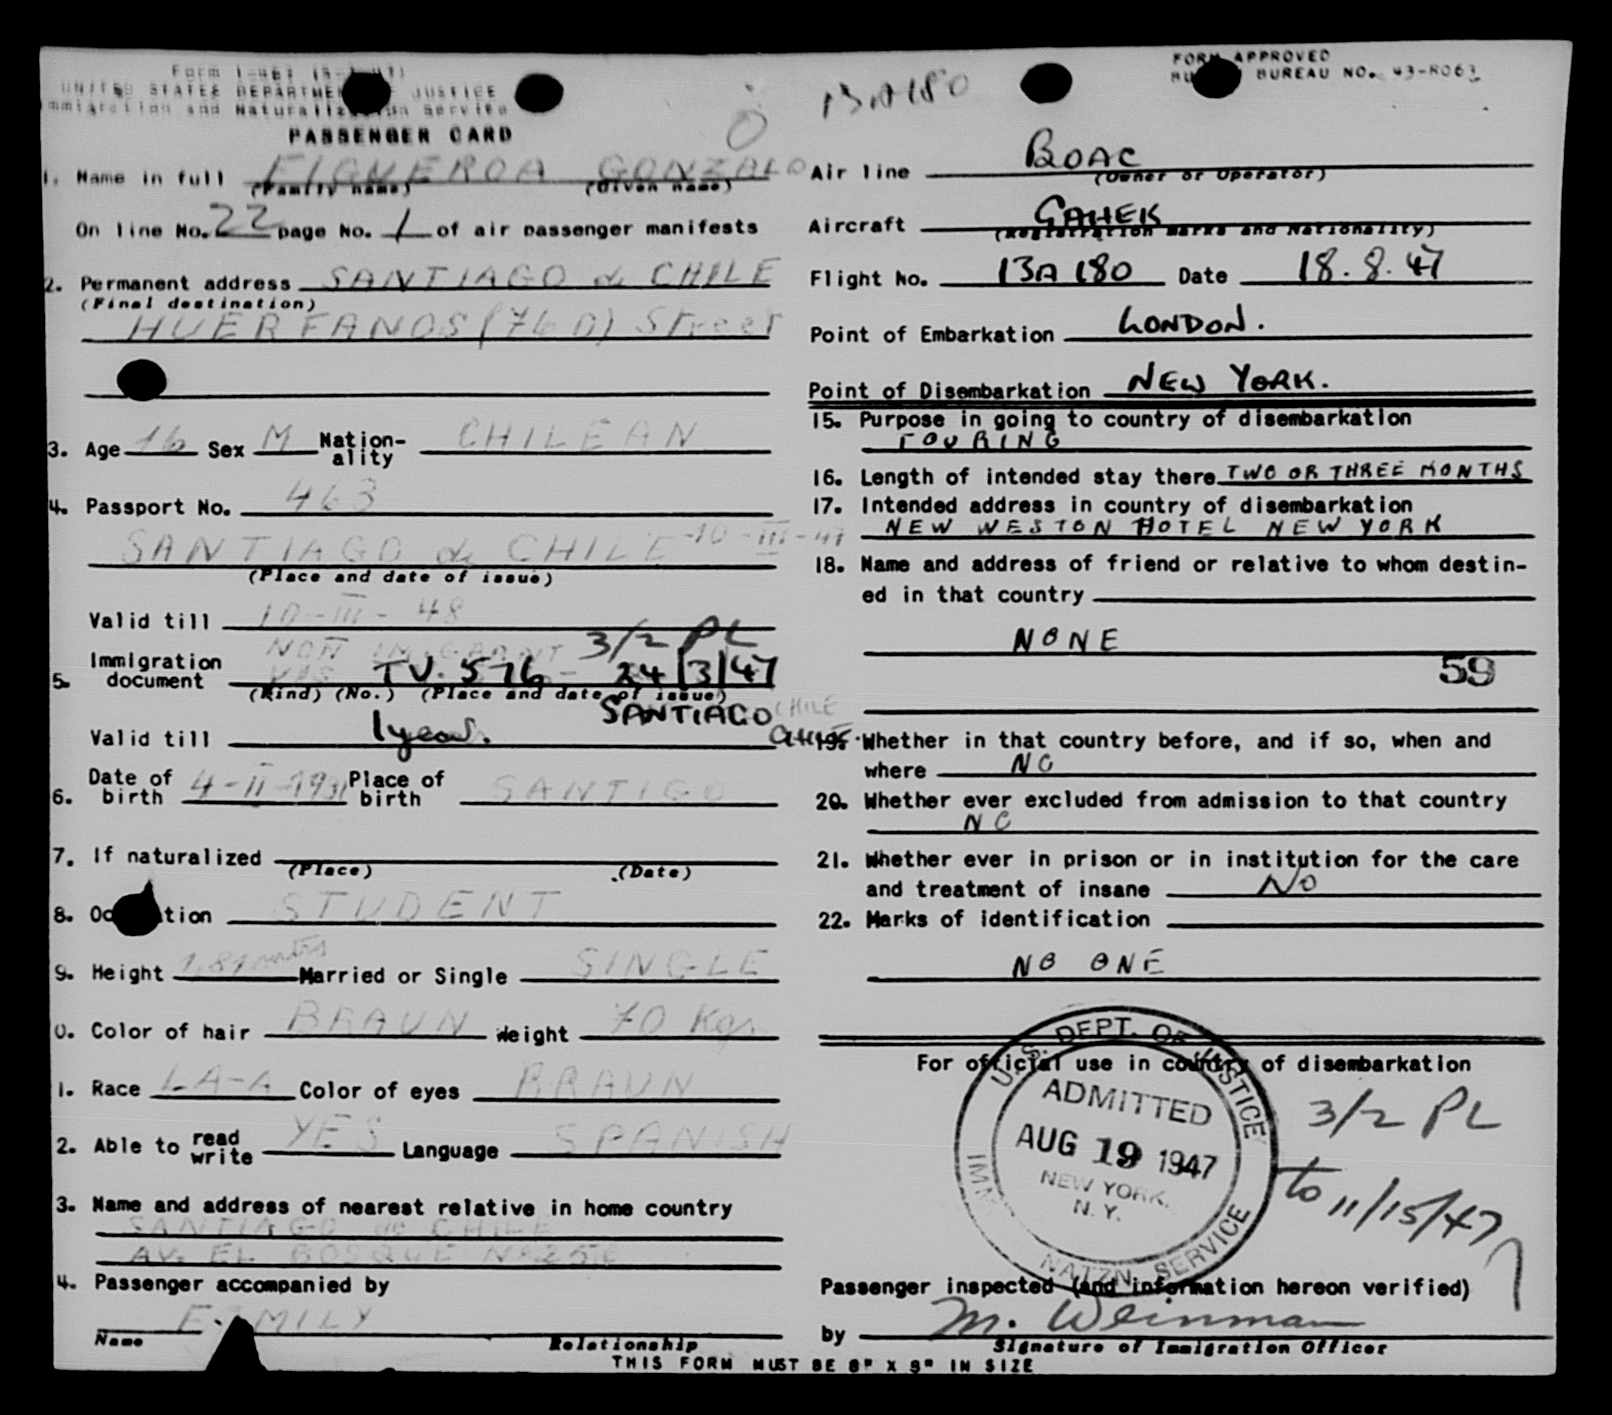 Form I-467
UNITED STATES DEPARTMENT OF JUSTICE
Immigration and Naturalization Service
PASSENGER CARD
13A180
FORM APPROVED
BUREAU NO. 43-R063
1. Name in full FIGUEROA GONZALO
(Family name) (Given name)
On line No. 22 page No. 1 of air passenger manifests
2. Permanent address SANTIAGO de CHILE
(Final destination)
HUERFANOS (760) Street
3. Age 16 Sex M Nation-ality CHILEAN
4. Passport No. 463
SANTIAGO de CHILE -10-III-47
(Place and date of issue)
Valid till 10-III-48
NON IMIGRANT 3/2 PL
5. Immigration document VIS TV. 576 24/3/47
(Kind) (No.) (Place and date of issue)
SANTIAGO CHILE
Valid till 1 year. CHILE.
6. Date of birth 4-II-1931 Place of birth SANTIGO
7. If naturalized
(Place) (Date)
8. Oc tion STUDENT
9. Height 1,81 metres Married or Single SINGLE
0. Color of hair BRAUN Weight 70 Kgs
1. Race LA-A Color of eyes BRAUN
2. Able to read write YES Language SPANISH
3. Name and address of nearest relative in home country
SANTIAGO de CHILE
AV. EL BOSQUE Nº
4. Passenger accompanied by
F MILY
Name Relationship
THIS FORM MUST BE 8" X 9" IN SIZE
Air line BOAC
(Owner or Operator)
Aircraft GAHEK
(Registration marks and Nationality)
Flight No. 13A 180 Date 18.8.47
Point of Embarkation LONDON.
Point of Disembarkation NEW YORK.
15. Purpose in going to country of disembarkation
TOURING
16. Length of intended stay there TWO OR THREE MONTHS
17. Intended address in country of disembarkation
NEW WESTON HOTEL NEW YORK
18. Name and address of friend or relative to whom destin-
ed in that country
NONE
59
19. Whether in that country before, and if so, when and
where NO
20. Whether ever excluded from admission to that country
NO
21. Whether ever in prison or in institution for the care
and treatment of insane No
22. Marks of identification
NO ONE
For official use in country of disembarkation
U.S. DEPT. OF JUSTICE
ADMITTED
AUG 19 1947
NEW YORK,
N.Y.
IMM NATZN. SERVICE
3/2 PL
to 11/15/47
Passenger inspected (and information hereon verified)
by M. Weinman
Signature of Immigration Officer